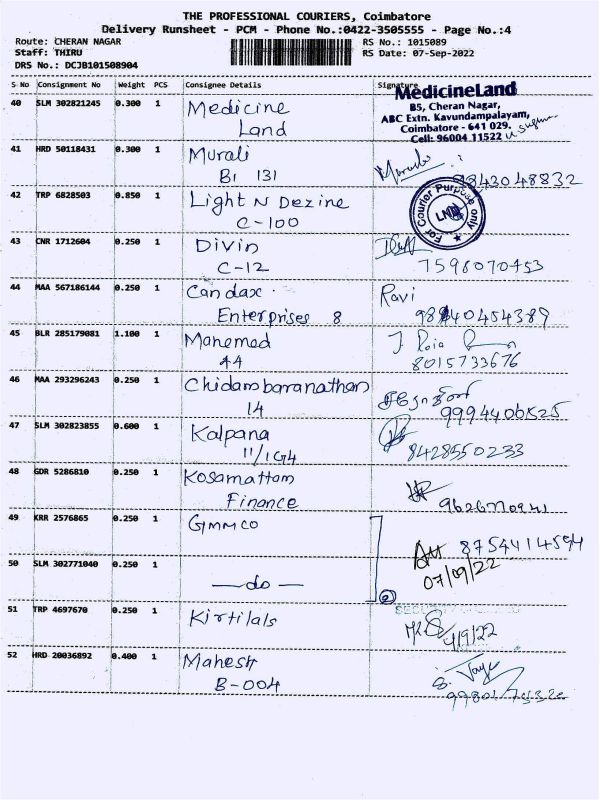 THE PROFESSIONAL COURIERS, Coimbatore
Delivery Runsheet - PCM - Phone No.:0422-3505555 - Page No.:4
Route: CHERAN NAGAR RS No.: 1015089
Staff: THIRU RS Date: 07-Sep-2022
DRS No.: DCJB101508904
S No Consignment No Weight PCS Consignee Details Signature
40 SLM 302821245 0.300 1 Medicine
Land
MedicineLand
B5, Cheran Nagar,
ABC Extn. Kavundampalayam,
Coimbatore - 641 029.
Cell: 96004 11522
41 HRD 50118431 0.300 1 Murali
B1 131
9843048832
42 TRP 6828503 0.850 1 Light N Dezine
C-100
For Courier Purpose only
LND
43 CNR 1712604 0.250 1 Divin
C-12
7598070453
44 MAA 567186144 0.250 1 Candax
Enterprises 8
Ravi
45 BLR 285179081 1.100 1 Manemed
44
8015733676
46 MAA 293296243 0.250 1 Chidambaranathan
14
47 SLM 302823855 0.600 1 Kalpana
11/1G4
8428550233
48 GDR 5286810 0.250 1 Kosamattam
Finance
49 KRR 2576865 0.250 1 Gimmco
8754414594
07/09/22
50 SLM 302771040 0.250 1 —do—
2
51 TRP 4697670 0.250 1 Kirtilals
4/9/22
52 HRD 20036892 0.400 1 Mahesh
B-004